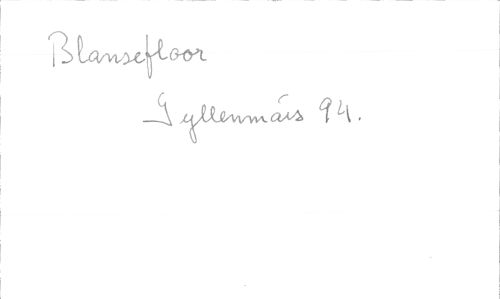 Blansefloor
Gyllenmårs 94.